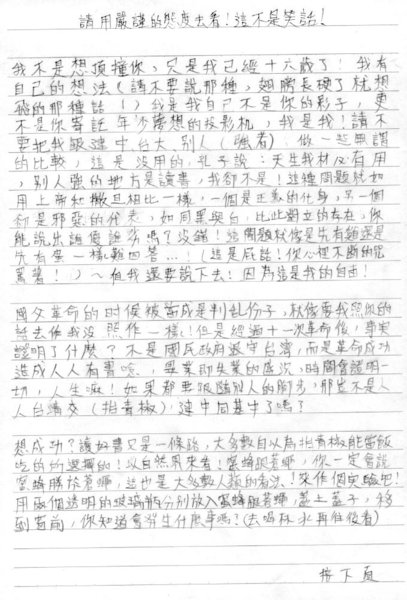 請用嚴謹的態度去看!這不是笑話!
我不是想頂撞你,只是我已經十六歲了!我有
自己的想法(請不要說那種,翅膀長硬了就想
飛的那種話!)我是我自己不是你的影子,更
不是你寄託年少夢想的投影机,我是我!請不
要把我跟建中、台大、別人(強者),做一起無謂
的比較,這是沒用的,孔子說:天生我材必有用
,別人強的地方是讀書,我卻不是!這種問題就如
用上帝和撒旦相比一樣,一個是正義的化身,另一個
卻是邪惡的代表,如同黑與白,比此對立的存在,你
能說出誰優誰劣嗎?沒錯!這問題就像是先有雞還是
先有蛋一樣難回答...!(這是屁話!你心裡不斷的咒
罵著!)~但我還要說下去!因為這是我的自由!
國父革命的时候被當成是判乱份子,就像要我照你的
話去做我沒照作一樣!但是經過十一次革命後,事实
證明了什麼?不是國民政府退守台灣,而是革命成功
造成人人有書唸,畢業即失業的盛況,時間會證明一
切,人生嘛!如果都要跟隨別人的腳步,那豈不是人
人台清交(拍青椒),建中同基生了嗎?
想成功?讀好書又是一條路,大多數自以為拍青椒能當飯
吃的的選擇的!以自然界來看!蜜蜂跟蒼蠅,你一定會說
蜜蜂勝於蒼蠅,這也是大多數人類的看法!來作個實驗吧!
用兩個透明的玻璃瓶分別放入蜜蜂跟蒼蠅,蓋上蓋子,移
到窗前,你知道會發生什麼事嗎?(去喝杯水再往後看)
接下頁